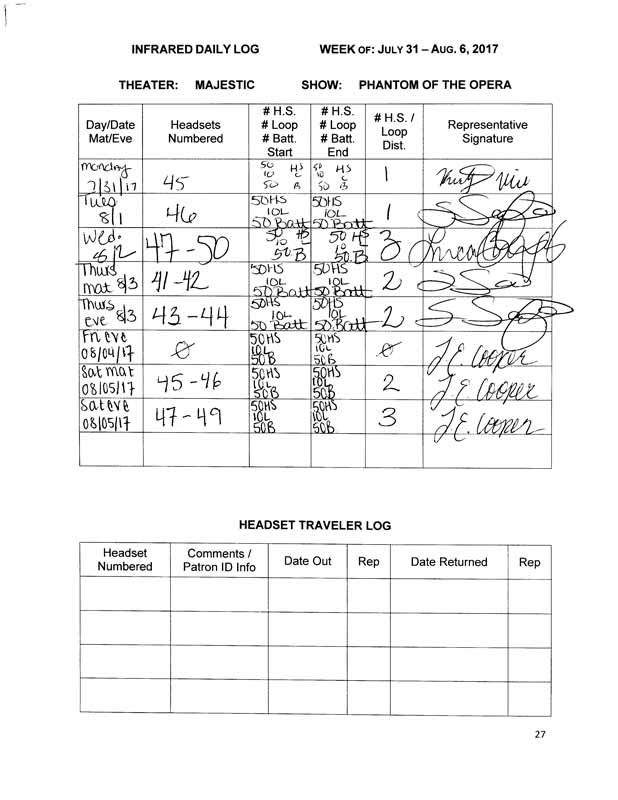 INFRARED DAILY LOG WEEK OF: JULY 31 – AUG. 6, 2017
THEATER: MAJESTIC SHOW: PHANTOM OF THE OPERA
Day/Date
Mat/Eve
Headsets
Numbered
# H.S.
# Loop
# Batt.
Start
# H.S.
# Loop
# Batt.
End
# H.S. /
Loop
Dist.
Representative
Signature
Monday
7/31/17
45
50 HS
10 C
50 B
50 HS
10 C
50 B
1
Tues
8/1
46
50HS
10L
50 Batt
50HS
10L
50 Batt
1
Wed.
8/2
47-50
50 HS
10
50.B
50 HS
10
50.B
3
Thurs
mat 8/3
41-42
50HS
10L
50 Batt
50HS
10L
50 Batt
2
Thurs
eve 8/3
43-44
50HS
10L
50 Batt
50HS
10L
50 Batt
2
Fri eve
08/04/17
Ø
50HS
10L
50B
50HS
10L
50B
Ø
J.E. Cooper
Sat mat
08/05/17
45-46
50HS
10L
50B
50HS
10L
50B
2
J.E. Cooper
Sat eve
08/05/17
47-49
50HS
10L
50B
50HS
10L
50B
3
J.E. Cooper
HEADSET TRAVELER LOG
Headset
Numbered
Comments /
Patron ID Info
Date Out
Rep
Date Returned
Rep
27